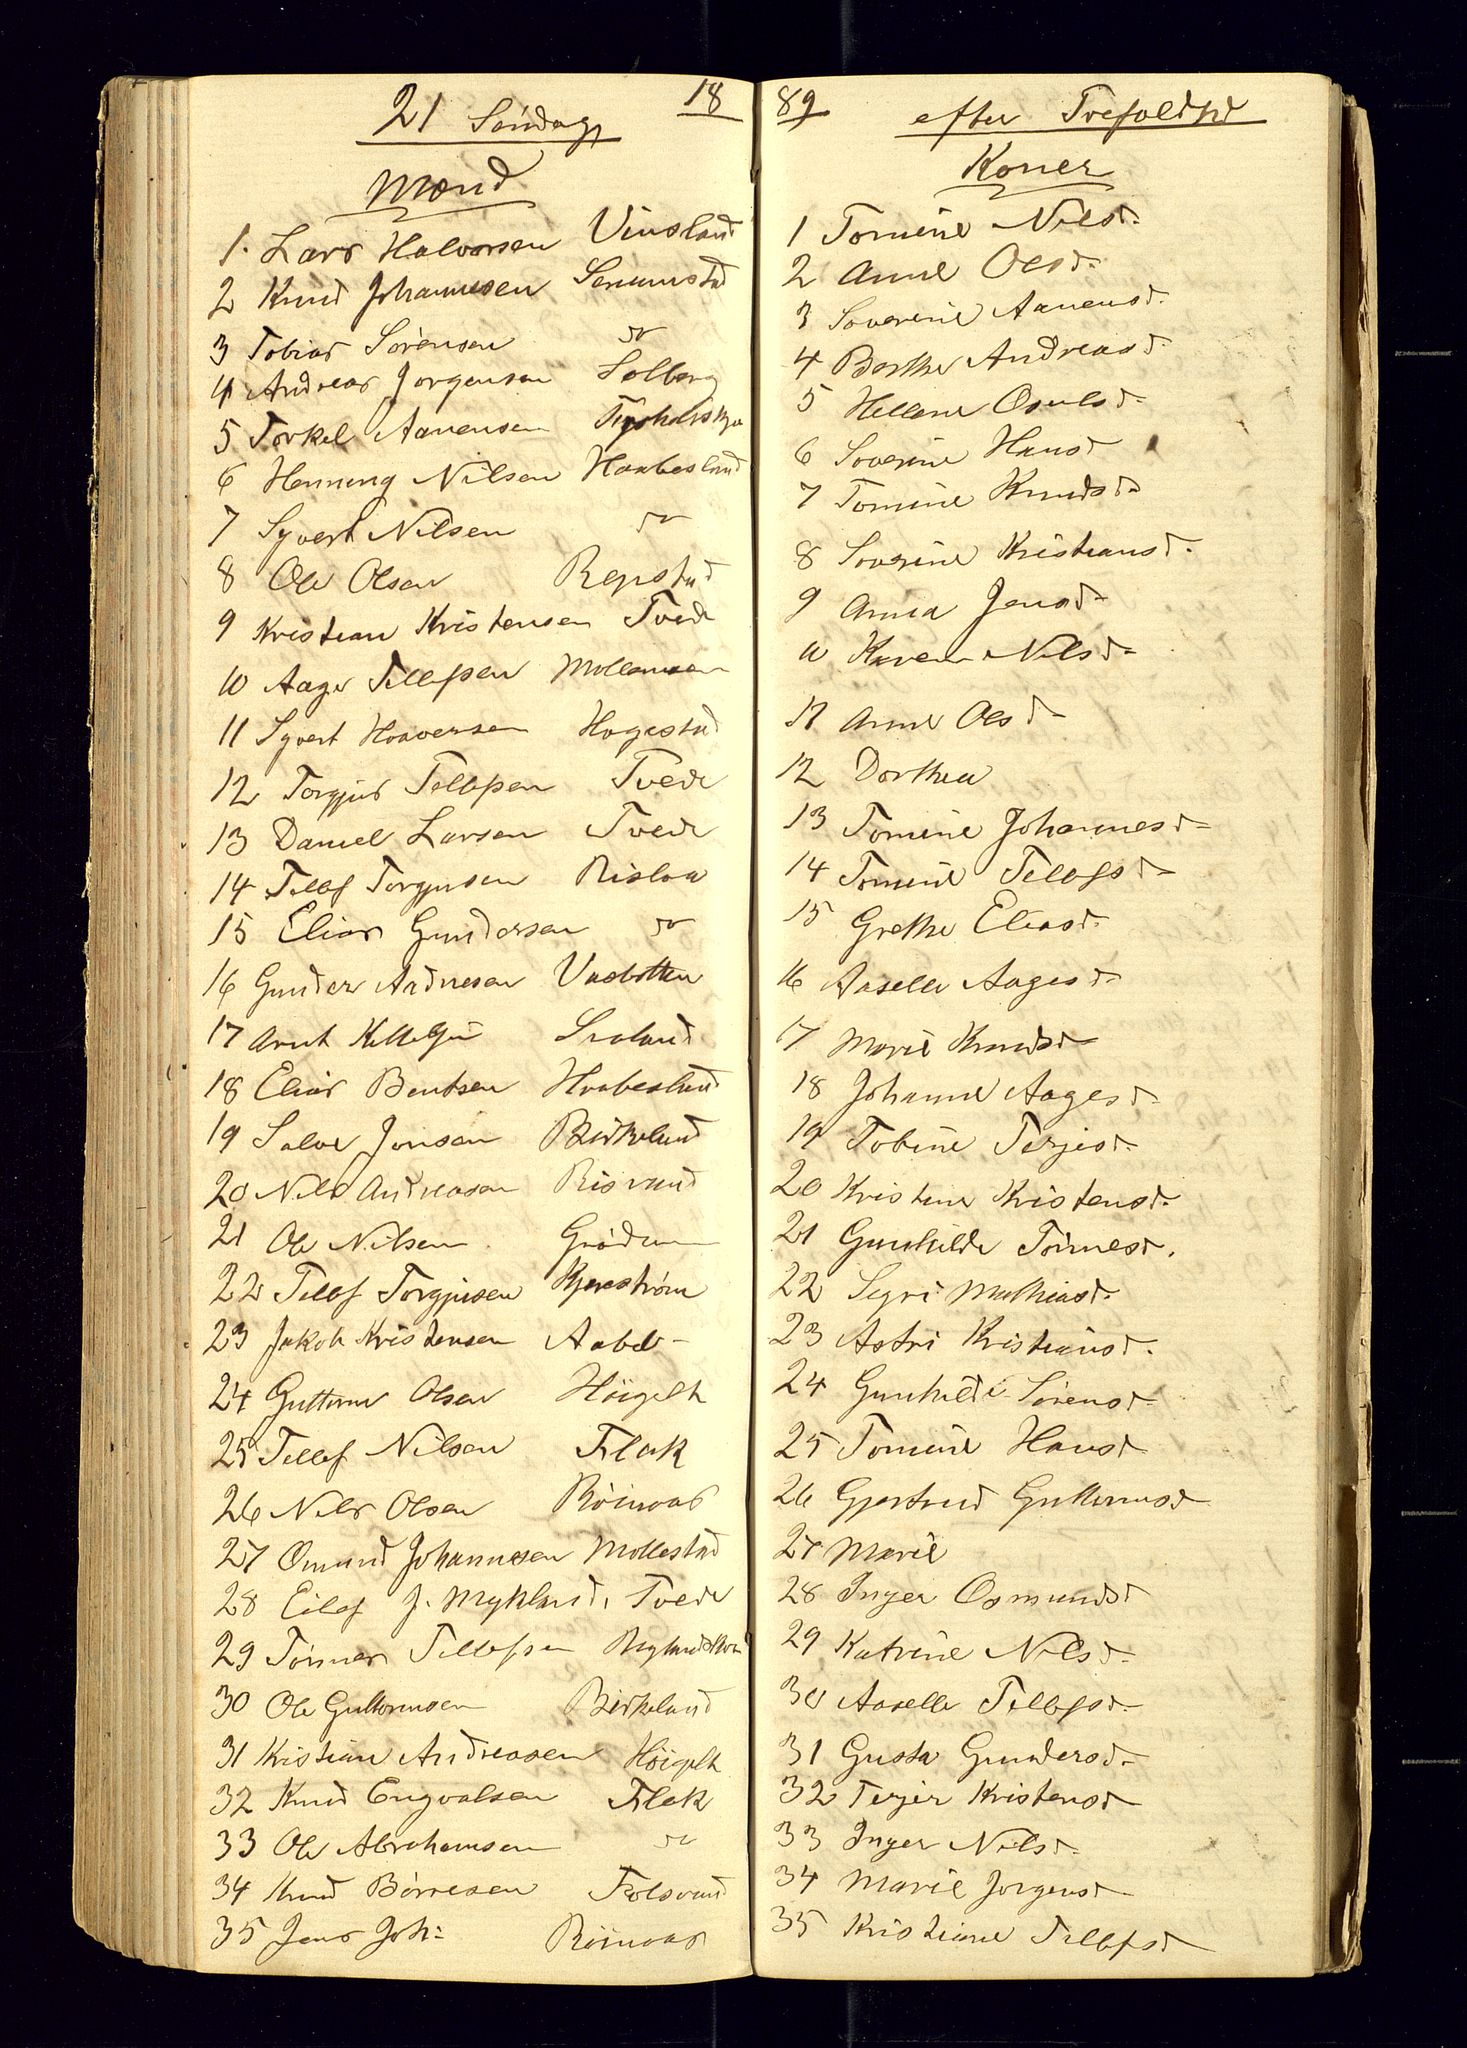 21 Søndag 18
Mænd
1. Lars Halvorsen Vinsland
2 Knud Johannesen Senumstad
3 Tobias Sørensen do
4 Andreas Jørgensen Solberg
5 Torkel Aanensen
6 Henning Nilsen Haabesland
7 Syvert Nilsen do
8 Ole Olsen Repstad
9 Kristian Kristensen Tvede
10 Aage Tellefsen Mollemoen
11 Syvert Haaversen Hagestad
12 Torgjus Tellefsen Tvede
13 Daniel Larsen Tvede
14 Tellef Torgjusen Rislaa
15 Elias Gundersen do
16 Gunder Andresen Vasbotten
17 Arnt Kittelsen
18 Elias Bentsen Haabesland
19 Salve Jensen Birkeland
20 Nils Andreasen Risvand
21 Ole Nilsen Grødum
22 Tellef Torgjusen Kjerestrøm
23 Jakob Kristensen Aabel
24 Guttorm Olsen Høigilt
25 Tellef Nilsen Flak
26 Nils Olsen Röinaas
27 Omund Johannesen Mollestad
28 Eilef J. Mykland, Tvede
29 Tønnes Tellefsen
30 Ole Guttormsen Birkeland
31 Kristian Andreasen Høigilt
32 Knud Engvalsen Flak
33 Ole Abrahamsen do
34 Knud Börresen Folsvand
35 Jens Joh: Röinaas
89 efter Trefoldhd
Koner
1 Tomine Nilsd.
2 Anne Olsd.
3 Severine Aanensd.
4 Berthe Andreasd.
5 Hellene Osulsd.
6 Severine Hansd
7 Tomine Knudsd.
8 Severine Kristiansd.
9 Anna Jensd.
10 Karen Nilsd.
11 Anne Olsd.
12 Dorthea
13 Tomine Johannesd.
14 Tomine Tellefsd.
15 Grethe Eliasd.
16 Aaselle Aagesd.
17 Marie Knudsd
18 Johanne Aagesd.
19 Tobine Terjesd.
20 Kristine Kristensd.
21 Gunhilde Tönnesd.
22 Sigri Mathiasd.
23 Astri Kristiansd.
24 Gunhilde Sörensd.
25 Tomine Hansd
26 Gjertrud Guttormsd.
27 Marie
28 Inger Osmundsd
29 Katrine Nilsd.
30 Aaselle Tellefsd.
31 Gusta Gundersd.
32 Terjer Kristensd
33 Inger Nilsd.
34 Marie Jörgensd
35 Kristiane Tellefsd